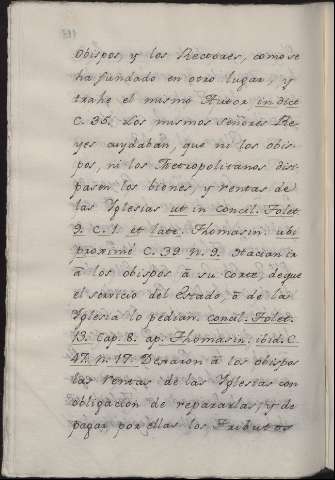 Obispos, y los Rectores, como se
ha fundado en otro lugar, y
trahe el mismo Autor in dict
C. 36. Los mismos señores Re-
yes ayudaban, que ni los obis-
pos, ni los Metropolitanos disi-
pasen los bienes, y rentas de
las Yglesias ut in Concil. Tolet
9. C. 1 et late. Thomasin. ubi
proximé C. 39 n. 9. Hacian ir
à los obispos à su corte, deque
el servicio del Estado, ò de la
Yglesia lo pedian. concil. Tolet.
13. Cap. 8. ap. Thomasin. ibid. C.
47. n. 17. Dexaron à los obispos
las rentas de las Yglesias con
obligacion de repararlas, y de
pagar por ellas los Tributos